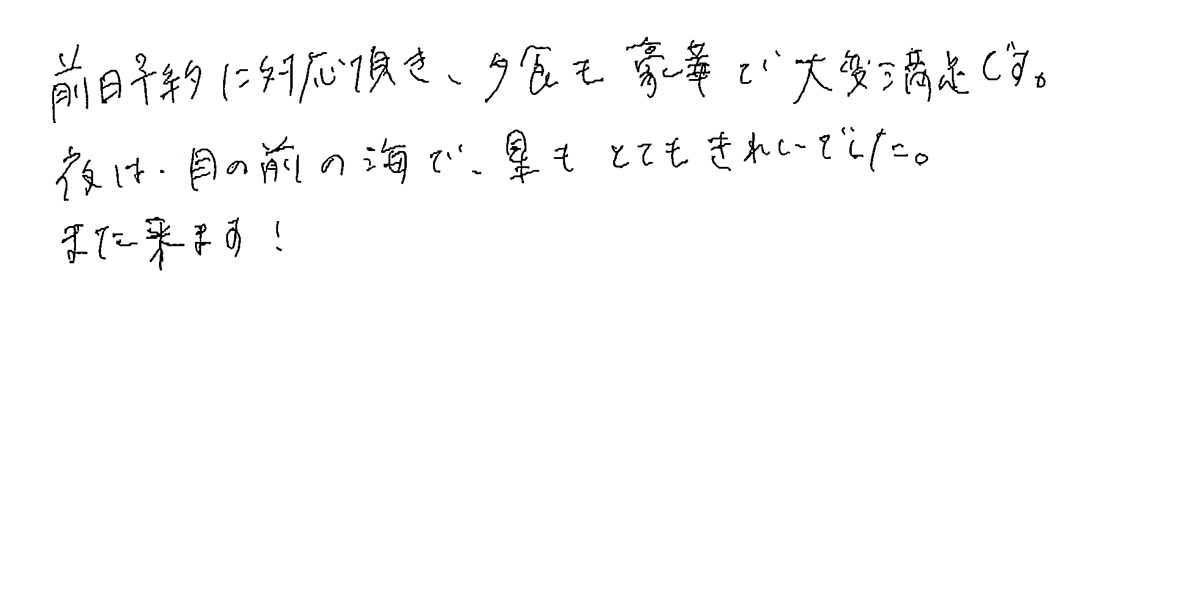 前日予約に対応頂き、夕食も豪華で大変満足です。
夜は、目の前の海で、星もとてもきれいでした。
また来ます！